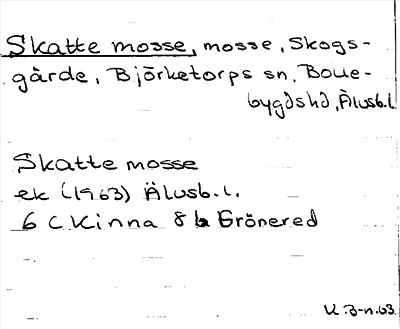 Skatte mosse, mosse, Skogs-
gärde, Björketorps sn, Bolle-
bygds hd, Älvsb. l.
Skatte mosse
ek (1963) Älvsb. l.
6 C Kinna 8 b Grönered